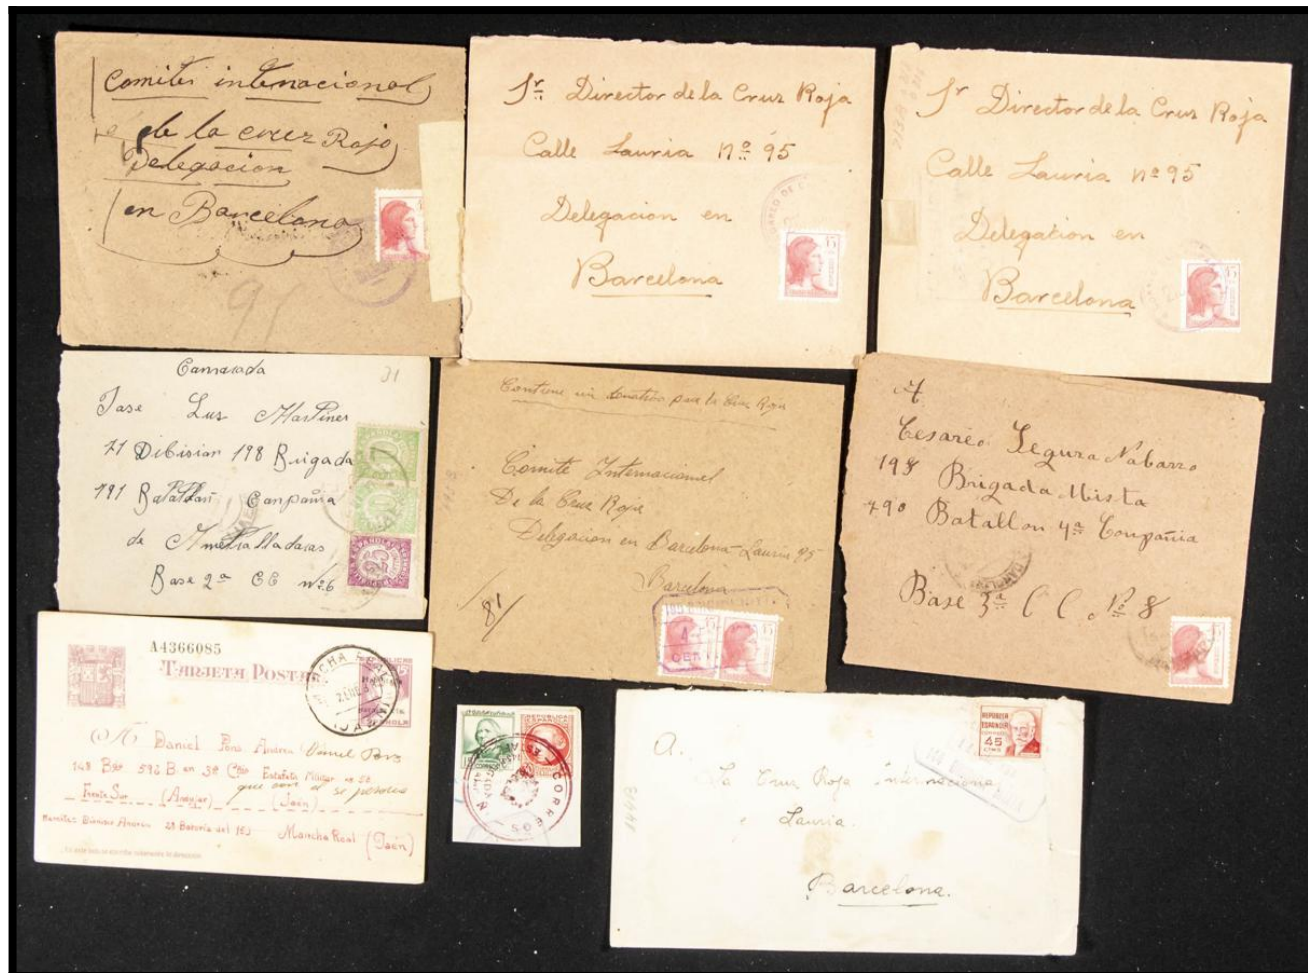 Comites internacional
de la cruz Rojo
Delegacion
en Barcelona
91
Sr. Director de la Cruz Roja
Calle Lauria Nº 95
Delegacion en
Barcelona
45
Sr Director de la Cruz Roja
Calle Lauria nº 95
Delegation en
Barcelona
45
Camarada
31
Jase Lus Martines
71 Dibision 198 Brigada
791 Batallan Canpañia
de Ametralladaras
Base 2ª CC nº 6
Contiene un donativo para la Cruz Roja
Comite Internacional
De la Cruz Roja
Delegacion en Barcelona-Lauria 95
Barcelona
81
45
45
A
Cesareo Segura Nabarro
198 Brigada Mista
790 Batallon 4ª Compañia
Base 3ª C C Nº 8
45
A4366085
TARJETA POSTAL
MANCHA REAL
(JAEN)
A Daniel Pons Andreu Daniel Pons
148 Bon 592 B. on 3ª Cñia Estafeta Militar nº 52
que non al se perdeu
Frente Sur (Andujar) (Jaén)
Remite: Dionisio Andreu 28 Bateria del 153 Mancha Real (Jaén)
REPUBLICA
ESPAÑOLA
CORREOS
REPUBLICA
ESPAÑOLA
45
CTMS
A.
La Cruz Roja Internaciona
Lauria.
Barcelona.